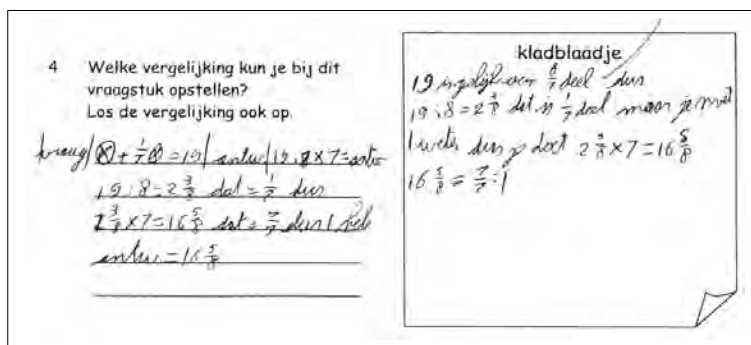 4 Welke vergelijking kun je bij dit
vraagstuk opstellen?
Los de vergelijking ook op.
vraag/ ⓧ + 1/7 ⓧ = 19/ antw/ 19:8 x 7 = antw
19:8 = 2 3/8 dat = 1/7 dus
2 3/8 x 7 = 16 5/8 dat = 7/7 dus 1 heel
antw. = 16 5/8
kladblaadje
19 is gelijk aan 8/7 deel dus
19:8 = 2 3/8 dat is 1/7 deel maar je moet
1 weten dus je doet 2 3/8 x 7 = 16 5/8
16 5/8 = 7/7 = 1